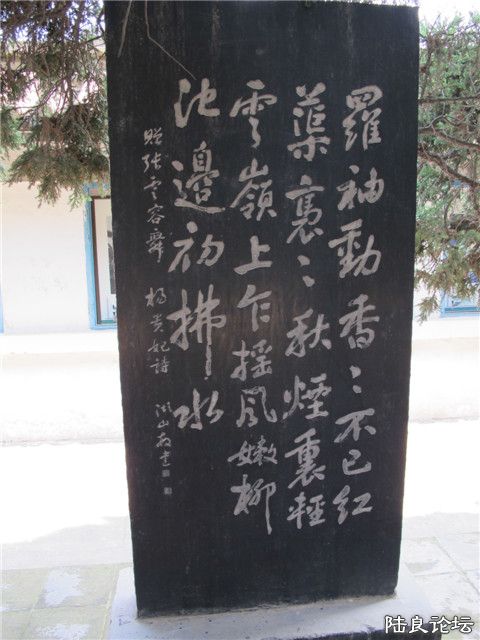 羅袖動香〻不已紅
蕖褭〻秋煙裏輕
雲嶺上乍摇風嫩柳
池邊初拂水
贈張雲容舞 楊貴妃詩
陆良论坛